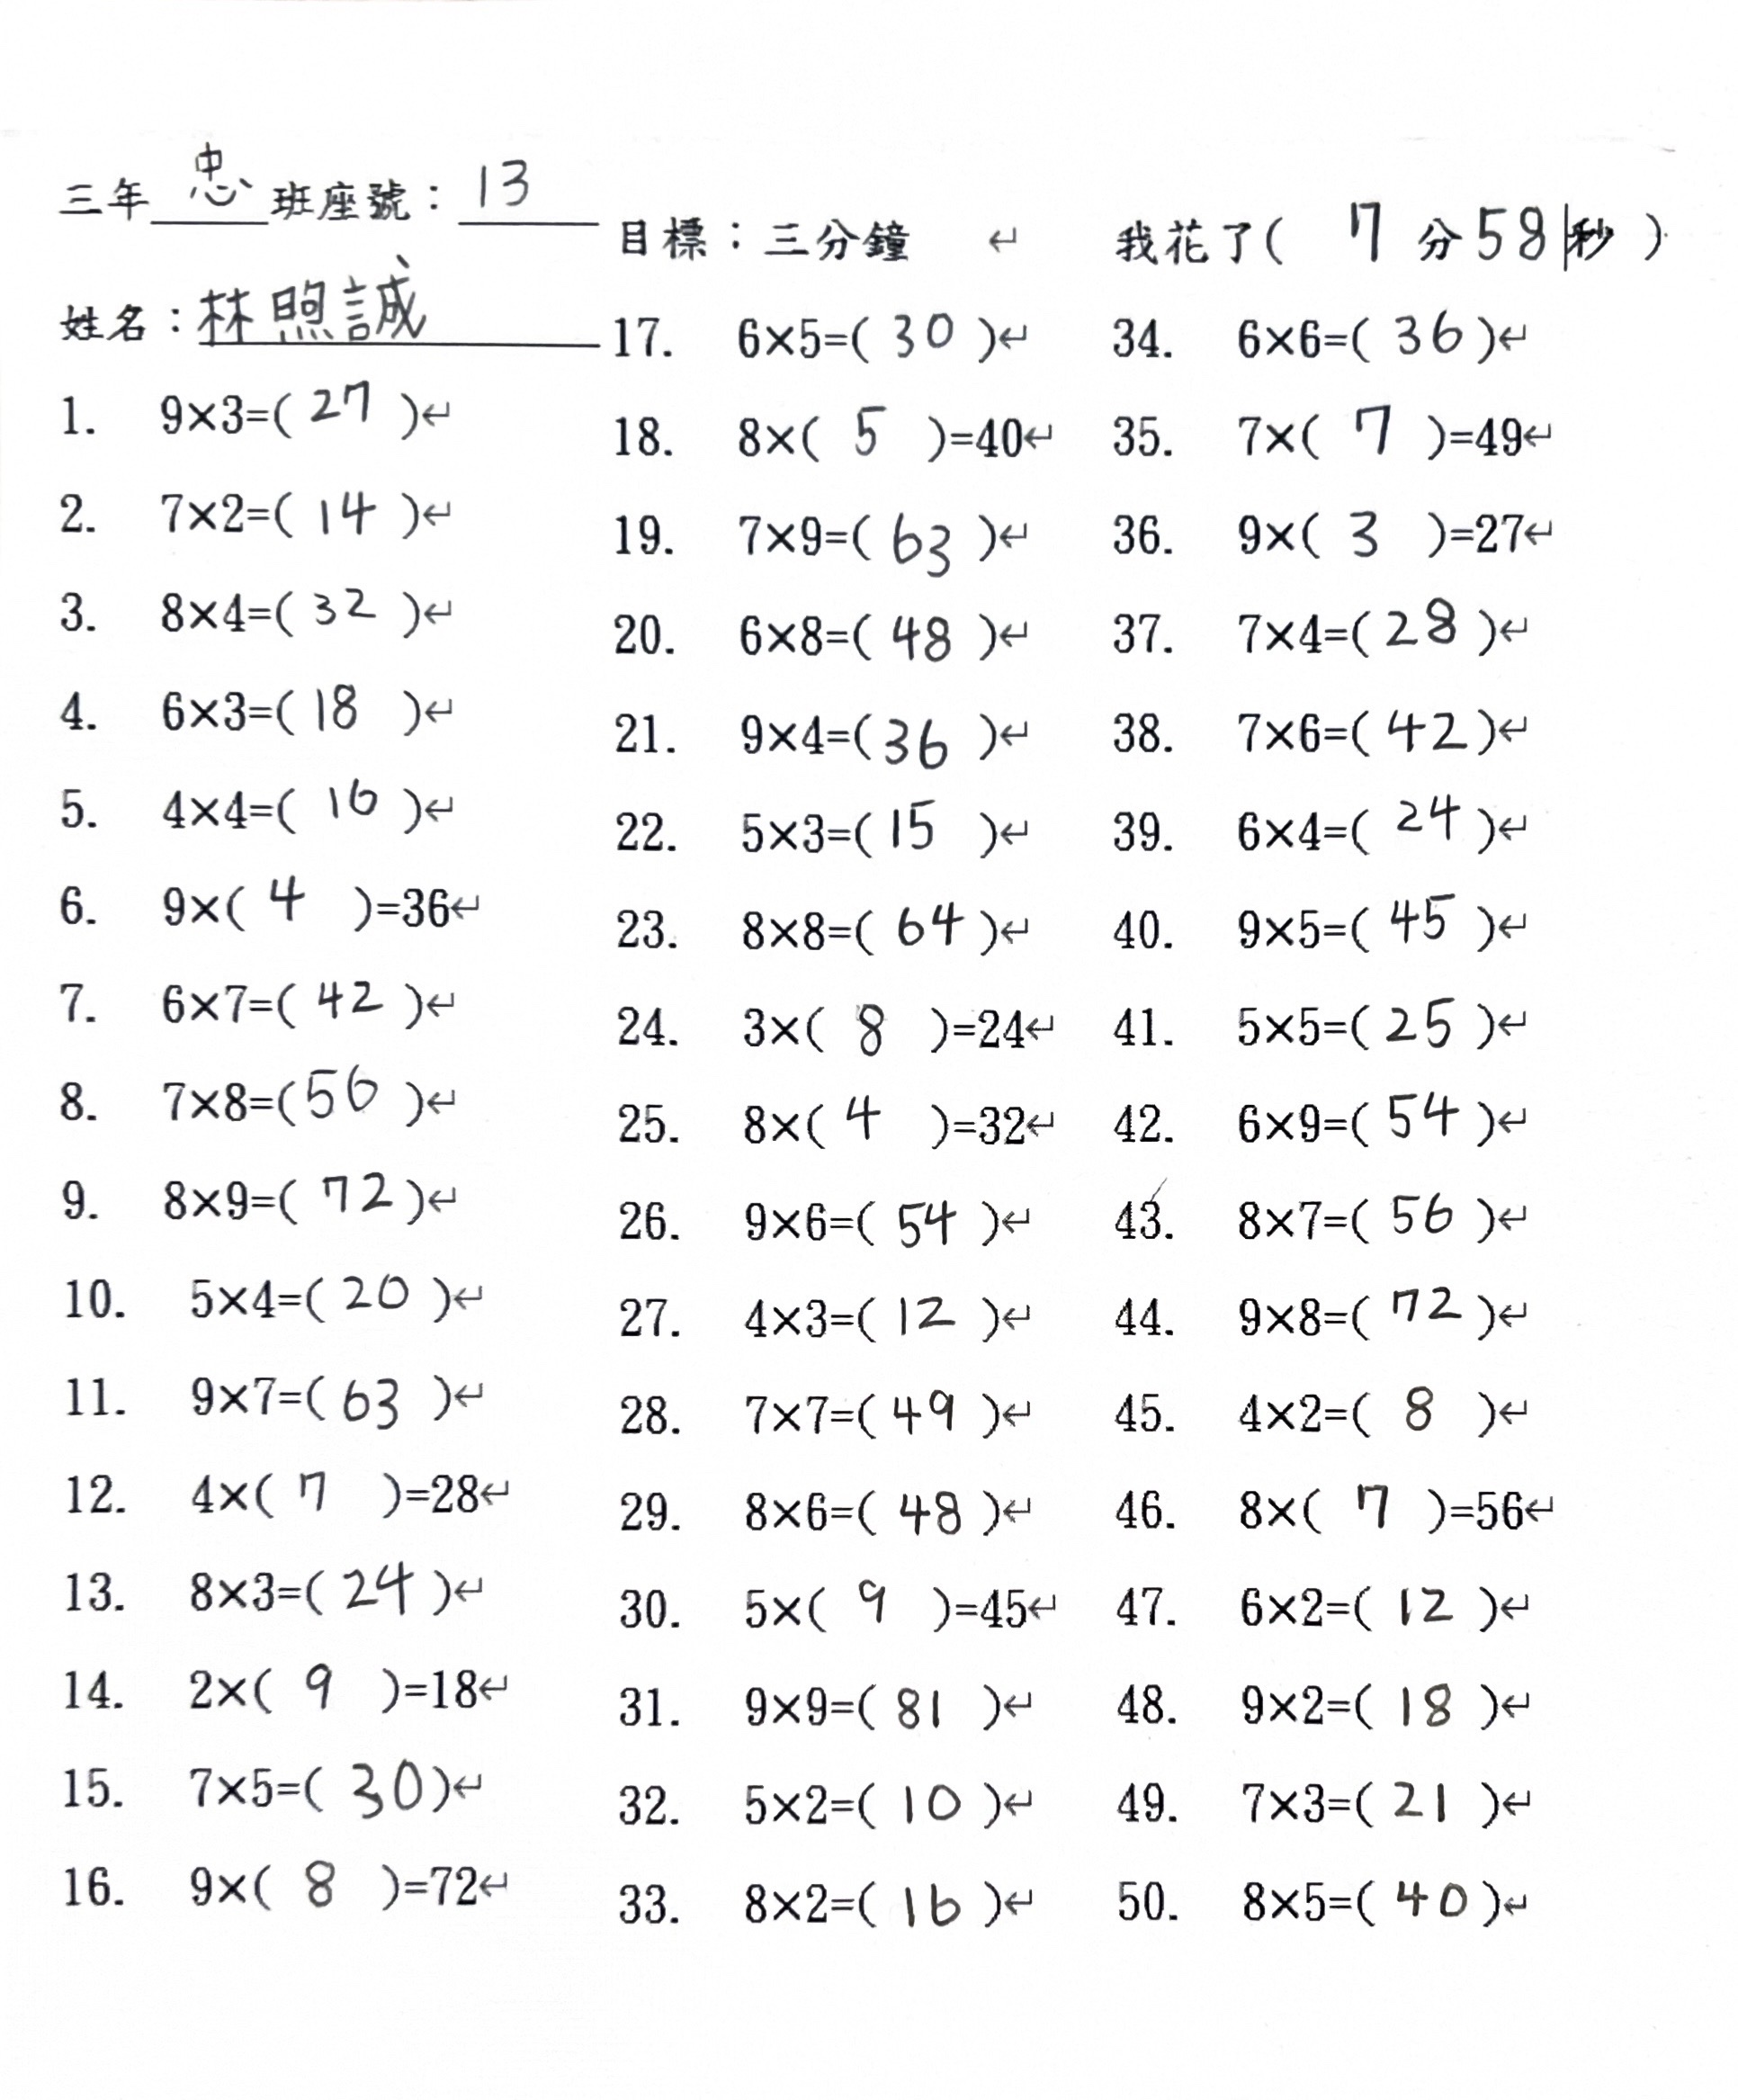 三年忠班座號：13
姓名：林照誠
1. 9×3=( 27 )↵
2. 7×2=( 14 )↵
3. 8×4=( 32 )↵
4. 6×3=( 18 )↵
5. 4×4=( 16 )↵
6. 9×( 4 )=36↵
7. 6×7=( 42 )↵
8. 7×8=( 56 )↵
9. 8×9=( 72 )↵
10. 5×4=( 20 )↵
11. 9×7=( 63 )↵
12. 4×( 7 )=28↵
13. 8×3=( 24 )↵
14. 2×( 9 )=18↵
15. 7×5=( 30 )↵
16. 9×( 8 )=72↵
目標：三分鐘 ↵
17. 6×5=( 30 )↵
18. 8×( 5 )=40↵
19. 7×9=( 63 )↵
20. 6×8=( 48 )↵
21. 9×4=( 36 )↵
22. 5×3=( 15 )↵
23. 8×8=( 64 )↵
24. 3×( 8 )=24↵
25. 8×( 4 )=32↵
26. 9×6=( 54 )↵
27. 4×3=( 12 )↵
28. 7×7=( 49 )↵
29. 8×6=( 48 )↵
30. 5×( 9 )=45↵
31. 9×9=( 81 )↵
32. 5×2=( 10 )↵
33. 8×2=( 16 )↵
我花了( 7 分 58 秒 )
34. 6×6=( 36 )↵
35. 7×( 7 )=49↵
36. 9×( 3 )=27↵
37. 7×4=( 28 )↵
38. 7×6=( 42 )↵
39. 6×4=( 24 )↵
40. 9×5=( 45 )↵
41. 5×5=( 25 )↵
42. 6×9=( 54 )↵
43. 8×7=( 56 )↵
44. 9×8=( 72 )↵
45. 4×2=( 8 )↵
46. 8×( 7 )=56↵
47. 6×2=( 12 )↵
48. 9×2=( 18 )↵
49. 7×3=( 21 )↵
50. 8×5=( 40 )↵